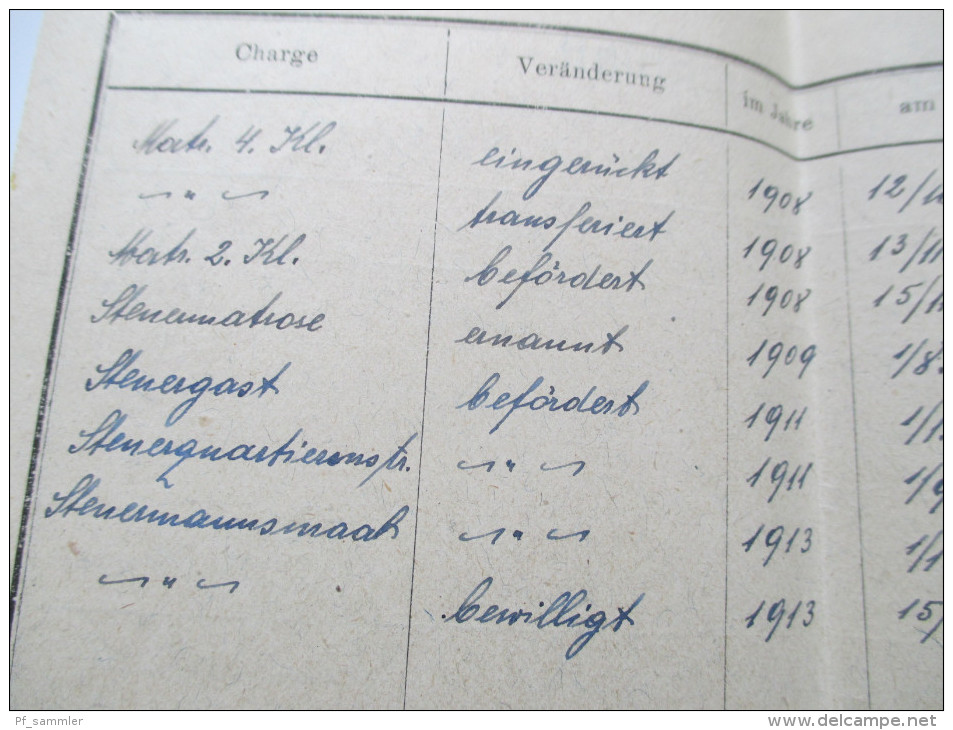 Charge Veränderung im Jahre am
Matr. 4. Kl. eingerückt 1908 12/
〃 transferiert 1908 13/11
Matr. 2. Kl. befördert 1908 15/1
Steuermatrose ernannt 1909 1/8.
Steuergast befördert 1911 1/1
Steuerquartiermstr. 〃 1911 1/9
Steuermannsmaat 〃 1913 1/1
〃 bewilligt 1913 15/
Pf_sammler
www.delcampe.net